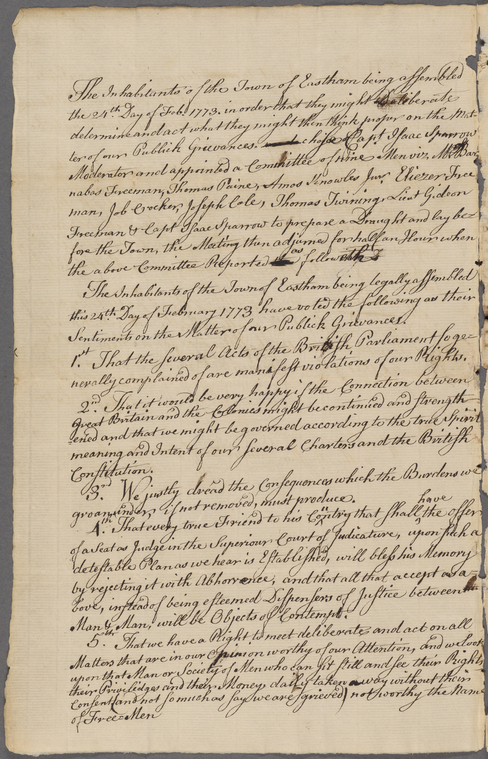 The Inhabitants of the Town of Eastham being assembled
the 24th Day of Feby. 1773. in order that they might deliberate
determine and act what they might then think proper on the Mat-
ter of our Publick Grievances chose Capt. Isaac Sparrow
Moderator and appointed a Committee of nine Men viz. Mr. Bar
nabas Freeman, Thomas Paine, Amos Knowles Junr Eliezer Free
man, Job Crocker, Joseph Cole, Thomas Twining, Lieut Gideon
Freeman & Capt. Isaac Sparrow to prepare a Draught and lay be-
fore the Town, the Meeting then adjurned for half an Hour when
the above Committee Reported as followeth
The Inhabitants of the Town of Eastham being legally assembled
this 24th. Day of February 1773 have voted the following as their
Sentiments on the Matter of our Publick Grievances.
1.st That the several Acts of the British Parliament so ge-
nerally complained of are manifest violations of our Rights.
2.d That it would be very happy if the Connection between
Great Britain and the Colonies might be continued and strength
ened and that we might be governed according to the true Spirit
meaning and Intent of our several Charters and the British
Constitution.
3.rd We justly dread the Consequences which the Burdens we
groan under, if not removed, must produce.
4.th That every true Friend to his Country that shall have the offer
of a Seat as Judge in the Superiour Court of Judicature, upon such a
detestable Plan as we hear is Established, will bless his Memory
by rejecting it with Abhorrence, and that all that accept as a-
bove, instead of being esteemed Dispensers of Justice between
Man & Man, will be Objects of Contempt.
5.th That we have a Right to meet deliberate and act on all
Matters that are in our Opinion worthy of our Attention, and we look
upon that Man or Society of Men who can sit still and see their Rights
their Priviledges and their Money daily taken away without their
Consent (and not so much as say we are grieved) not worthy the Name
of Free-Men